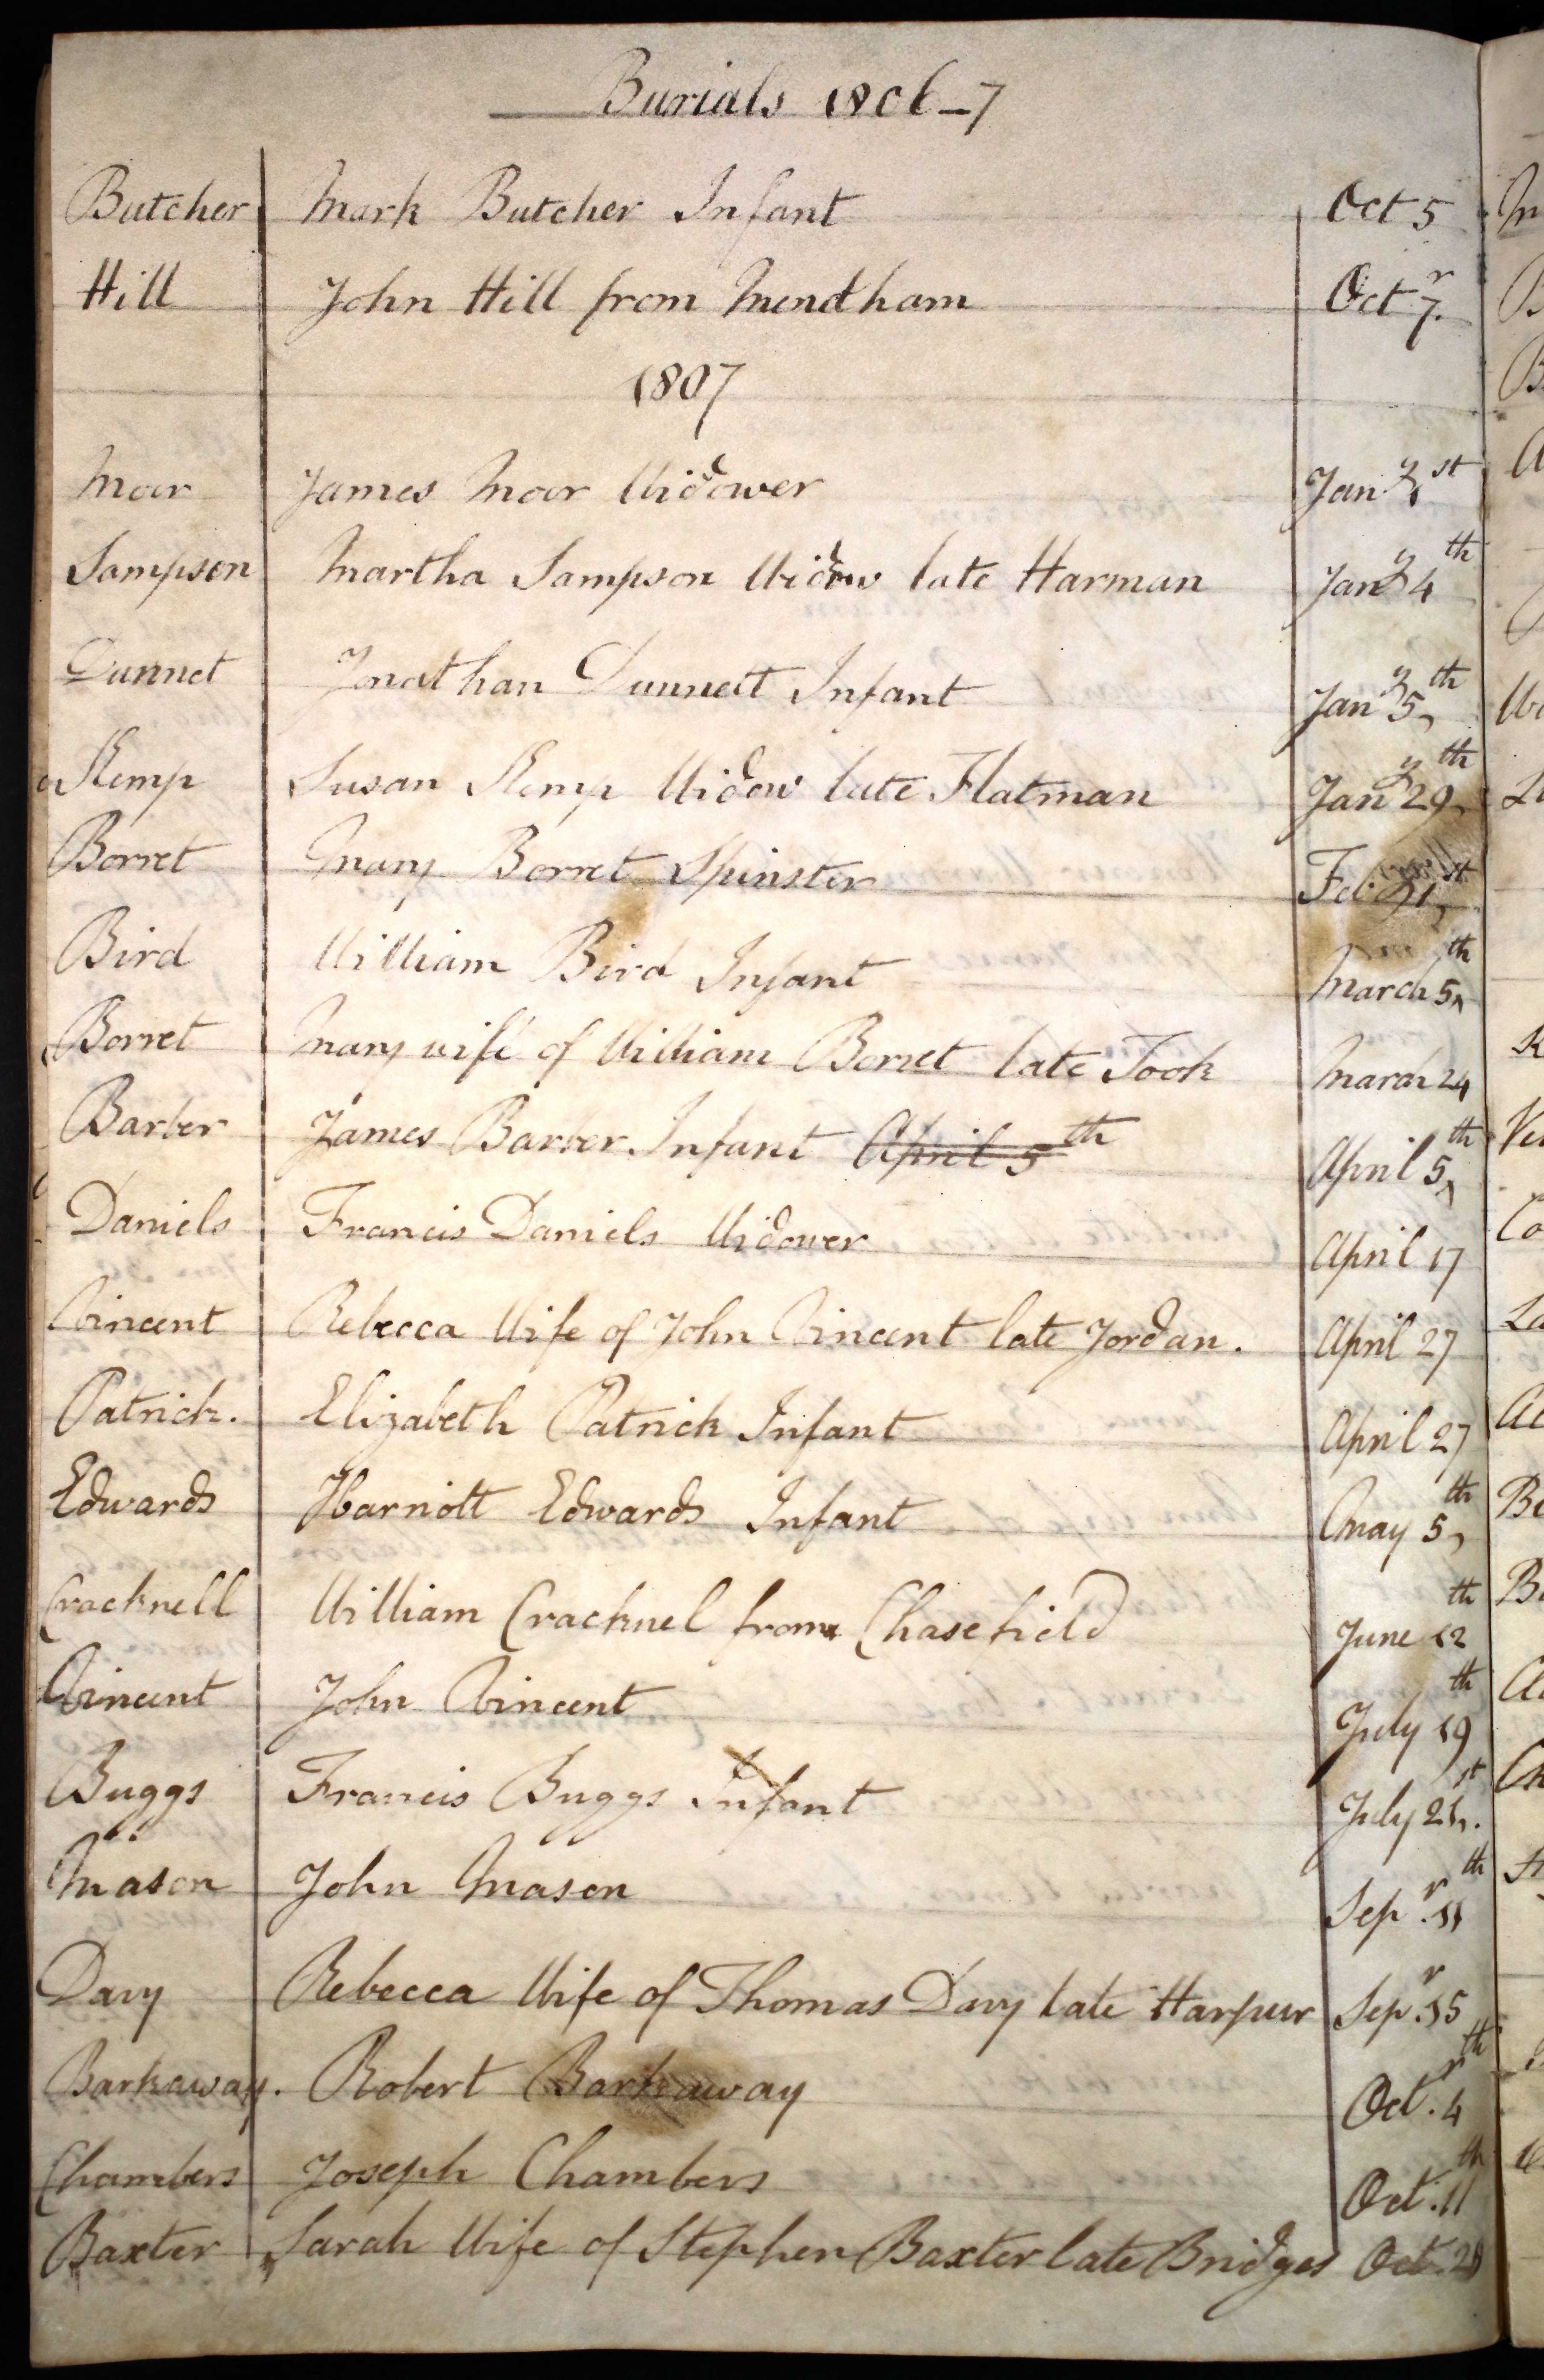 Burials 1806-7
Butcher Mark Butcher Infant Oct 5
Hill John Hill from Mendham Octr 7.
1807
Moor James Moor Widower Jany 1st
Sampson Martha Sampson Widow late Harman Jany 4th
Dunnet Jonathan Dunnett Infant Jany 5th
Kemp Susan Kemp Widow late Flatman Jany 29th
Borret Mary Borret Spinster Feb. 21st
Bird William Bird Infant March 5th
Borret Mary wife of William Borret late Took March 24
Barber James Barber Infant April 5th April 5th
Daniels Francis Daniels Widower April 17
Vincent Rebecca Wife of John Vincent late Jordan. April 27
Patrick. Elizabeth Patrick Infant April 27
Edwards Harriott Edwards Infant May 5th
Cracknell William Cracknel from Chasefield June 12th
Vincent John Vincent July 19th
Buggs Francis Buggs Infant July 21st.
Mason John Mason Sepr. 11th
Davy Rebecca Wife of Thomas Davy late Harpur Sepr. 15
Barkaway. Robert Barkaway Octr. 4th
Chambers Joseph Chambers Oct. 11th
Baxter Sarah Wife of Stephen Baxter late Bridges Oct.